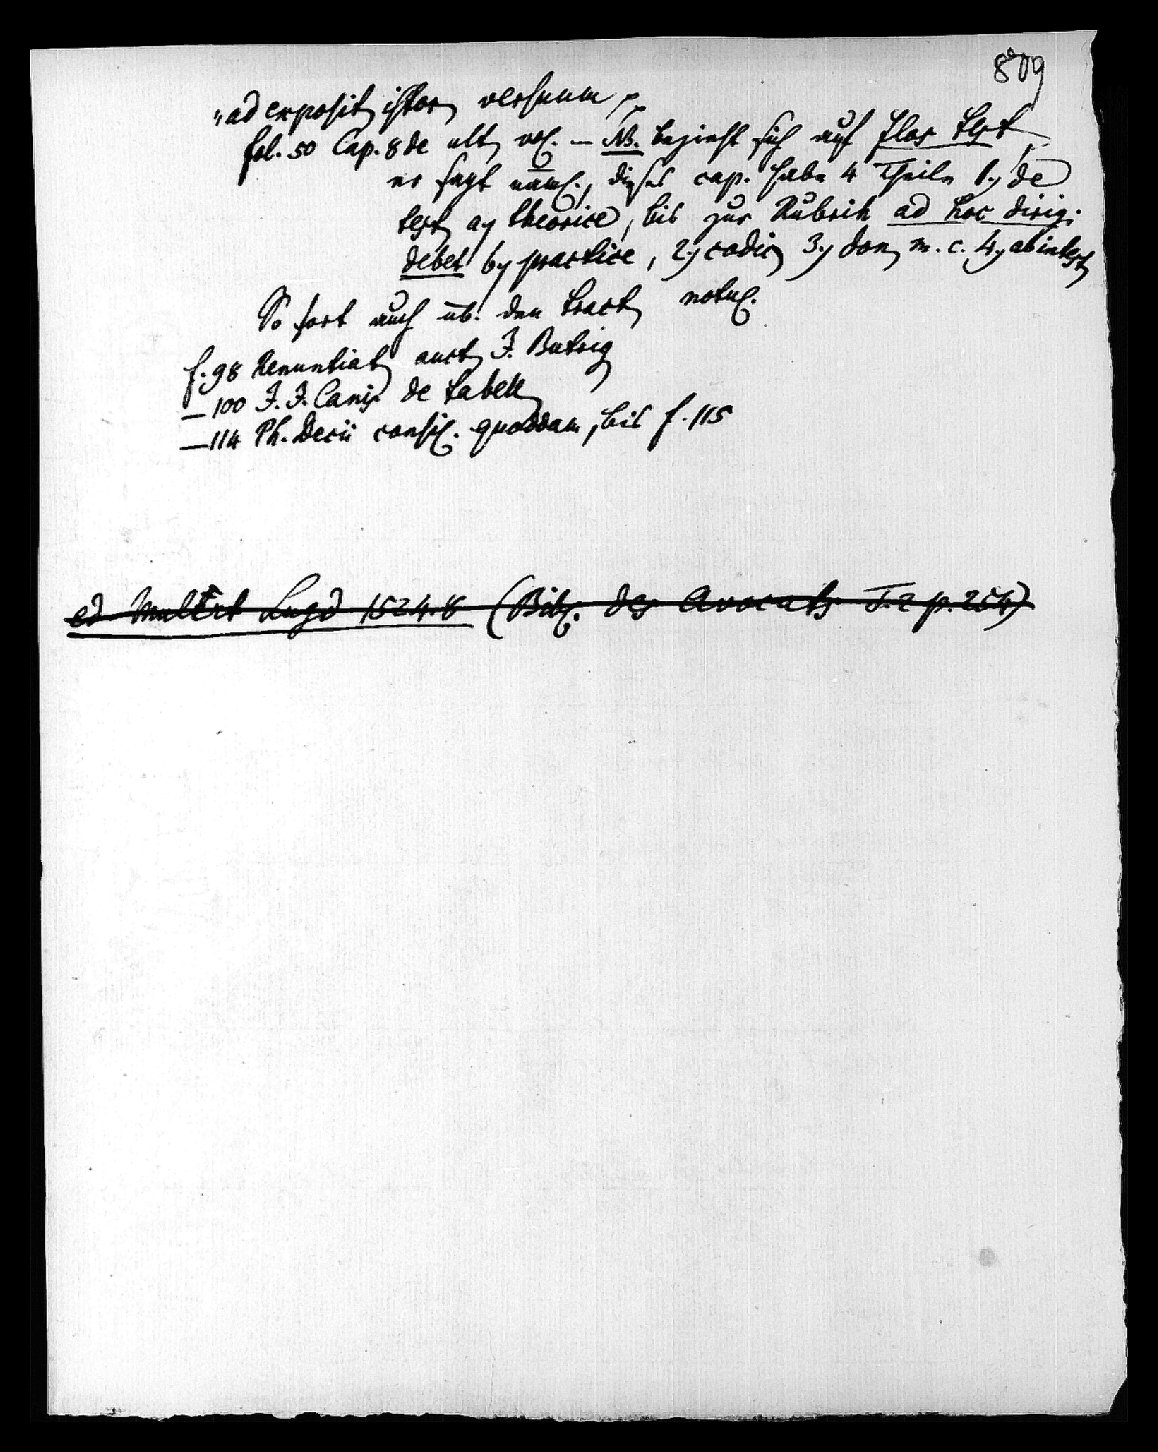 809
„ad exposit. istor. versuum
fol. 50 Cap. 8 de ult. vol. — NB. bezieht sich auf flos test.
er sagt nämlich, dieses cap. habe 4 Theile 1.) de
test. a) theorice, bis zur Rubrik ad hoc dirigi
debet b) practice, 2) codic. 3.) don. m. c. 4) ab intest.
So fort auch üb. den tract. notul.
f. 98 Renuntiat. auct. J. Butrig.
— 100 J. J. Canis de tabell.
— 114 Ph. Decii consil. quoddam, bis f. 115
ed Lugd 1524.8 (Bibl. des Avocats T. 2 p. 254)